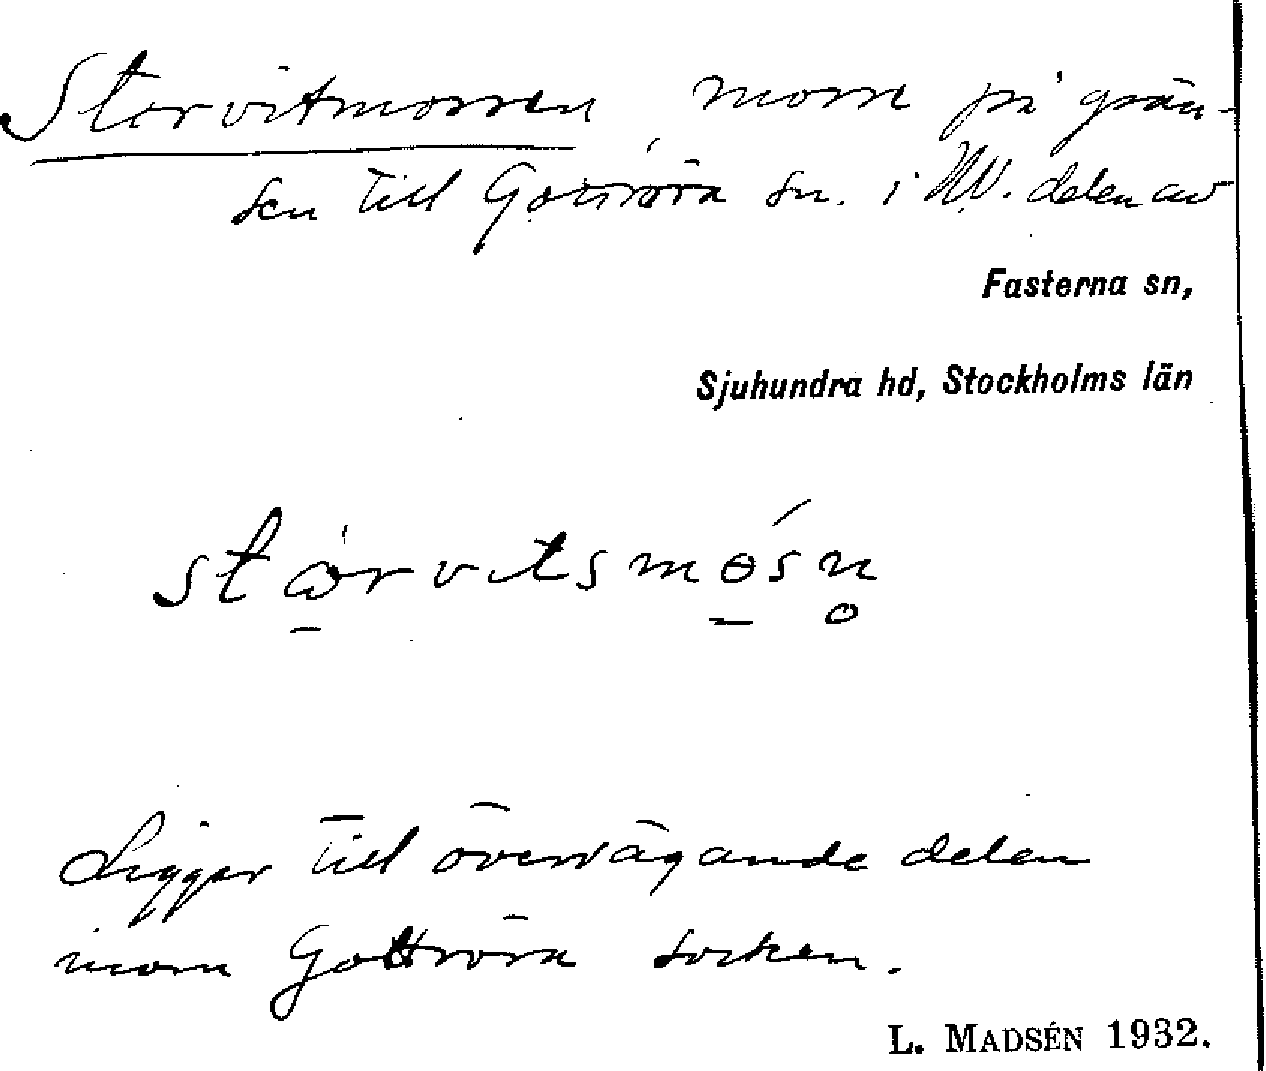 Storvitmossen, mosse på grän-
sen till Gottröra sn. i NV. delen av
Fasterna sn,
Sjuhundra hd, Stockholms län
Ligger till övervägande delen
inom Gottröra socken.
L. MADSÉN 1932.